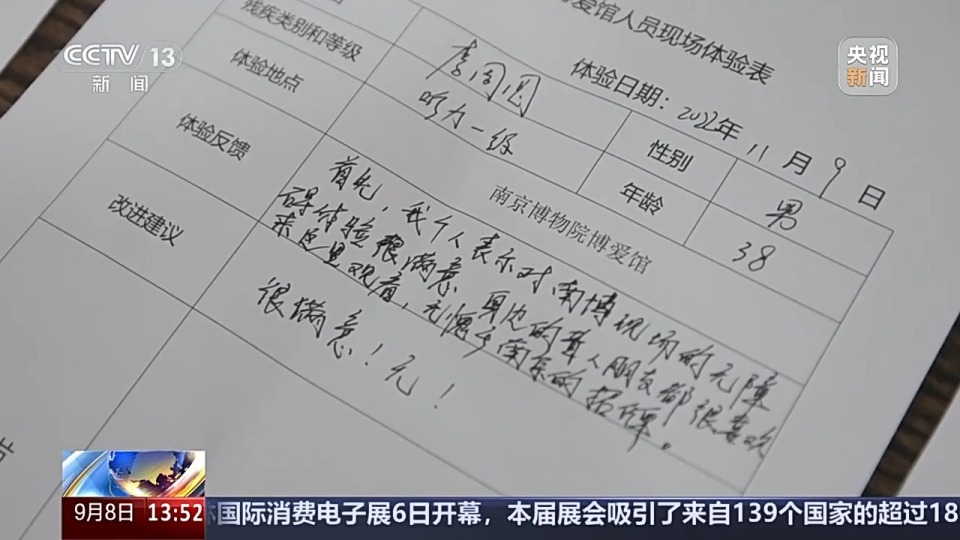 CCTV 13
新闻
央视
新闻
爱馆人员现场体验表
体验日期：2022年11月9日
李同恩
性别
男
残疾类别和等级
听力一级
年龄
38
体验地点
南京博物院博爱馆
体验反馈
首先，我个人表示对南博现场的无障
碍体验很满意，身边的聋人朋友都很喜欢
来这里观看，无愧于南京的招牌。
改进建议
很满意！无！
9月8日 13:52
国际消费电子展6日开幕，本届展会吸引了来自139个国家的超过18